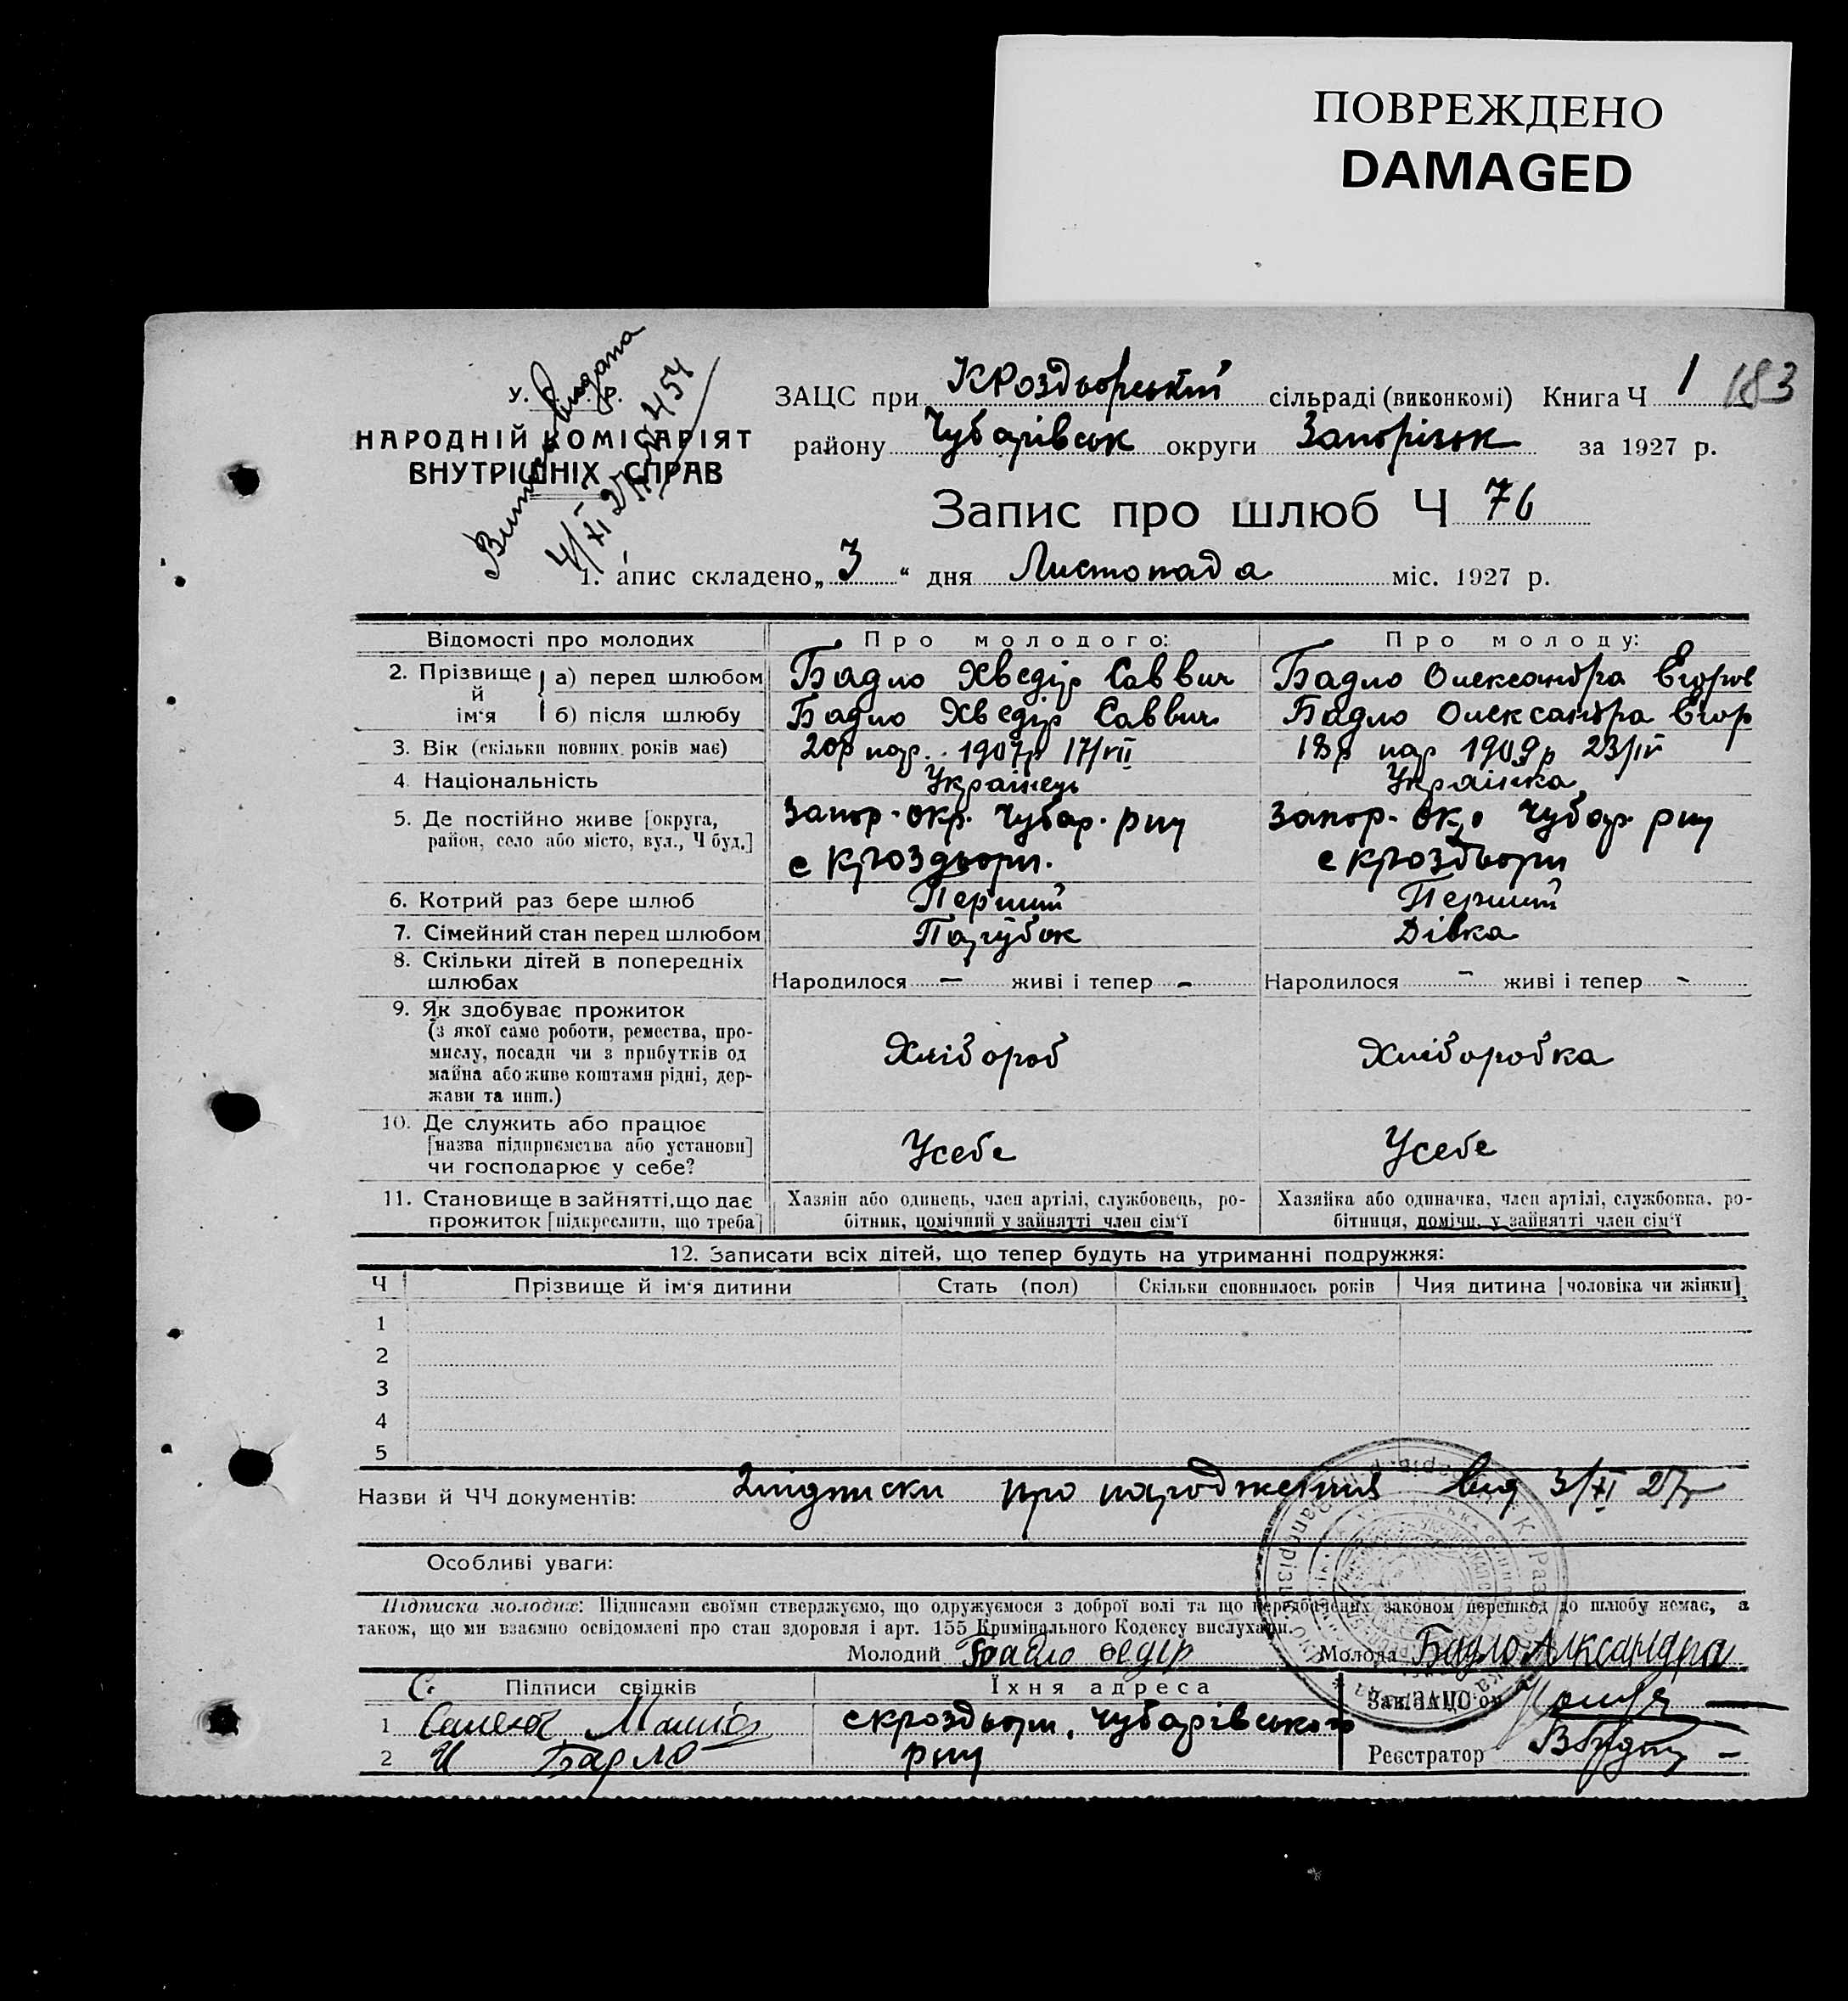 ПОВРЕЖДЕНО
DAMAGED
У. С. Р. Р.
НАРОДНІЙ КОМІСАРІЯТ
ВНУТРІШНІХ СПРАВ
ЗАЦС при КРоздьорський сільраді (виконкомі) Книга Ч 1 183
району Чубарівськ округи Запорізьк за 1927 р.
Запис про шлюб Ч 76
1. апис складено „ 3 “ дня Листопада міс. 1927 р.
Відомості про молодих Про молодого: Про молоду:
2. Прізвище й ім‘я а) перед шлюбом Бадло Хведір Саввич Бадло Олександра Егоров
б) після шлюбу Бадло Хведір Саввич Бадло Олександра Егор
3. Вік (скільки повних років має) 20р нар. 1907р 17/VII 18р нар 1909р 23/IV
4. Національність Українець Українка
5. Де постійно живе [округа, Запор. окр. Чубар. рну Запор. Окр Чубар. рну
район, село або місто, вул., Ч буд.] с Кроздьори. с Кроздьори
6. Котрий раз бере шлюб Перший Перший
7. Сімейний стан перед шлюбом Парубок Дівка
8. Скільки дітей в попередніх
шлюбах Народилося — живі і тепер - Народилося - живі і тепер -
9. Як здобуває прожиток
(з якої саме роботи, ремества, про-
мислу, посади чи з прибутків од Хлібороб Хліборобка
майна або живе коштами рідні, дер-
жави та инш.)
10. Де служить або працює
[назва підприємства або установи] Усебе Усебе
чи господарює у себе?
11. Становище в зайнятті, що дає Хазяїн або одинець, член артілі, службовець, ро- Хазяйка або одиначка, член артілі, службовка, ро-
прожиток [підкреслити, що треба] бітник, помічний у зайнятті член сім‘ї бітниця, помічн. у зайнятті член сім‘ї
12. Записати всіх дітей, що тепер будуть на утриманні подружжя:
Ч Прізвище й ім‘я дитини Стать (пол) Скільки сповнилось років Чия дитина [чоловіка чи жінки]
1
2
3
4
5
Назви й ЧЧ документів: 2 підписки про народження від 3/XI 27р
Особливі уваги:
Підписка молодих: Підписами своїми стверджуємо, що одружуємося з доброї волі та що передбачених законом перешкод до шлюбу немає, а
також, що ми взаємно освідомлені про стан здоровля і арт. 155 Кримінального Кодексу вислухали.
Молодий Бадло Федір Молода Бадло Александра
Підписи свідків Їхня адреса Зав. ЗАЦС‘ом
1 с кроздьори, Чубарівського
2 И рну Реєстратор